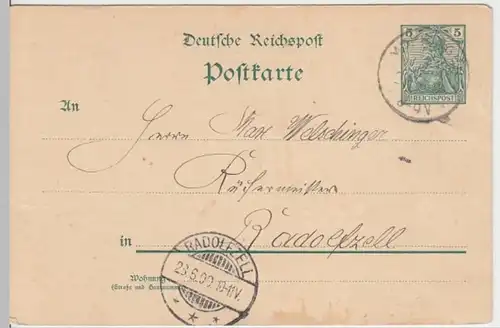 Deutsche Reichspost
5 5
REICHSPOST
Postkarte
8-9V
An
Herrn Max Welschinger
Küfermeister
in Radolfzell
RADOLFZELL
23.6.00.10-11V.
Wohnung
(Straße und Hausnummer)